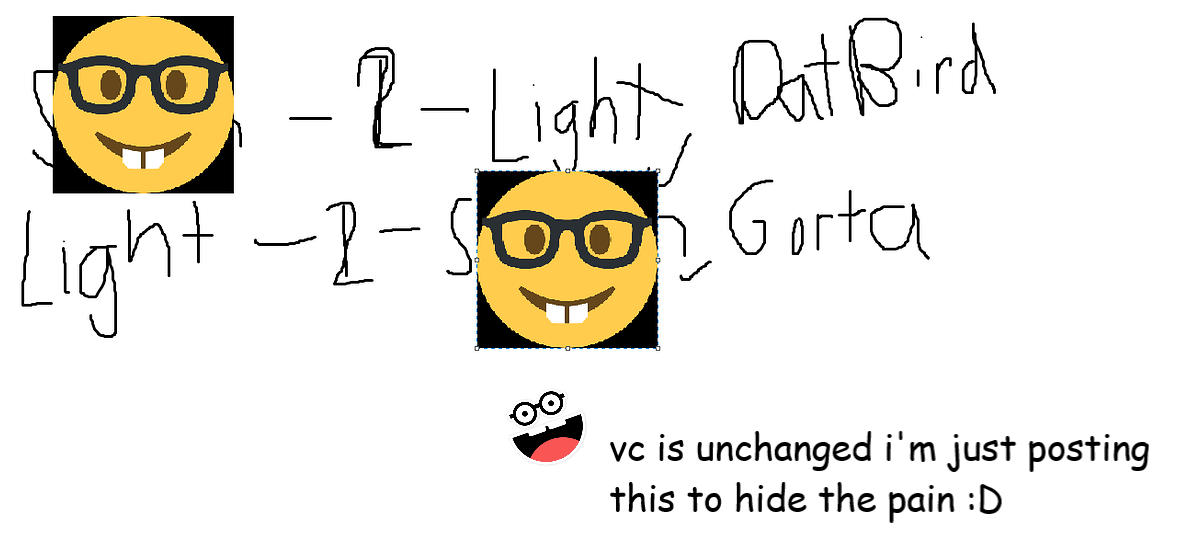 - 2 - Light, DatBird
Light - 2 - S, Gorta
vc is unchanged i'm just posting
this to hide the pain :D